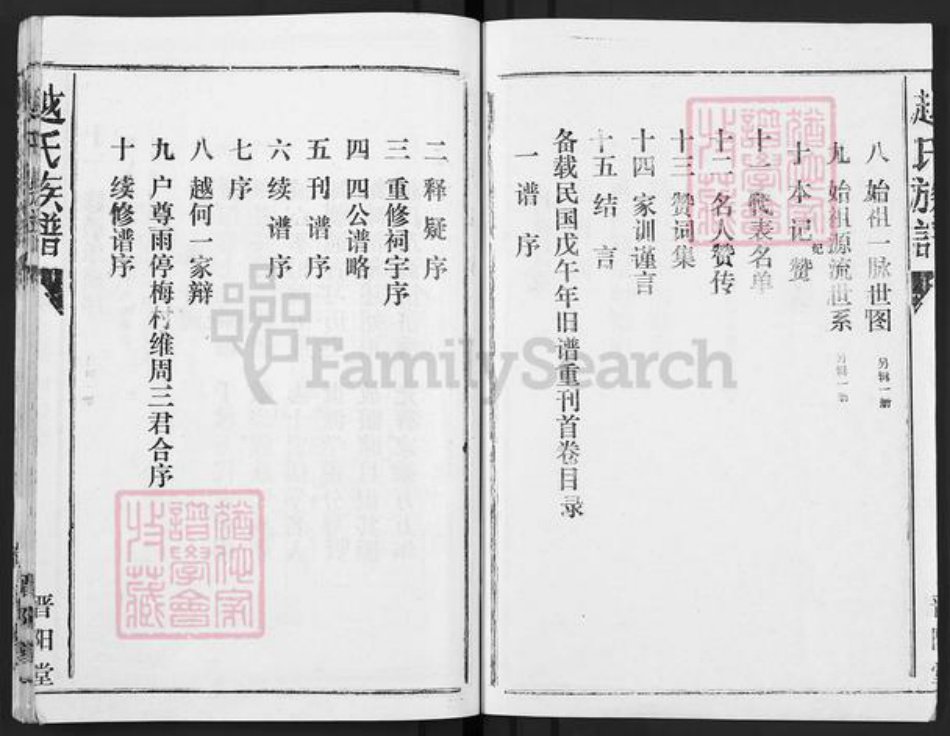 赵氏族谱
八 始祖一脉世图 另辑一册
九 始祖源流世系 另辑一册
十 本纪赞
十一 代表名单
十二 名人赞传
十三 赞词集
十四 家训谨言
十五 结言
备载民国戊午年旧谱重刊首卷目录
一 谱序
二 释疑序
三 重修祠宇序
四 四公谱略
五 刊谱序
六 续谱序
七 序
八 越何一家辩
九 户尊雨停梅村维周三君合序
十 续修谱序
越氏族谱
晋阳堂
犹他家谱学会收藏
犹他家谱学会收藏
FamilySearch